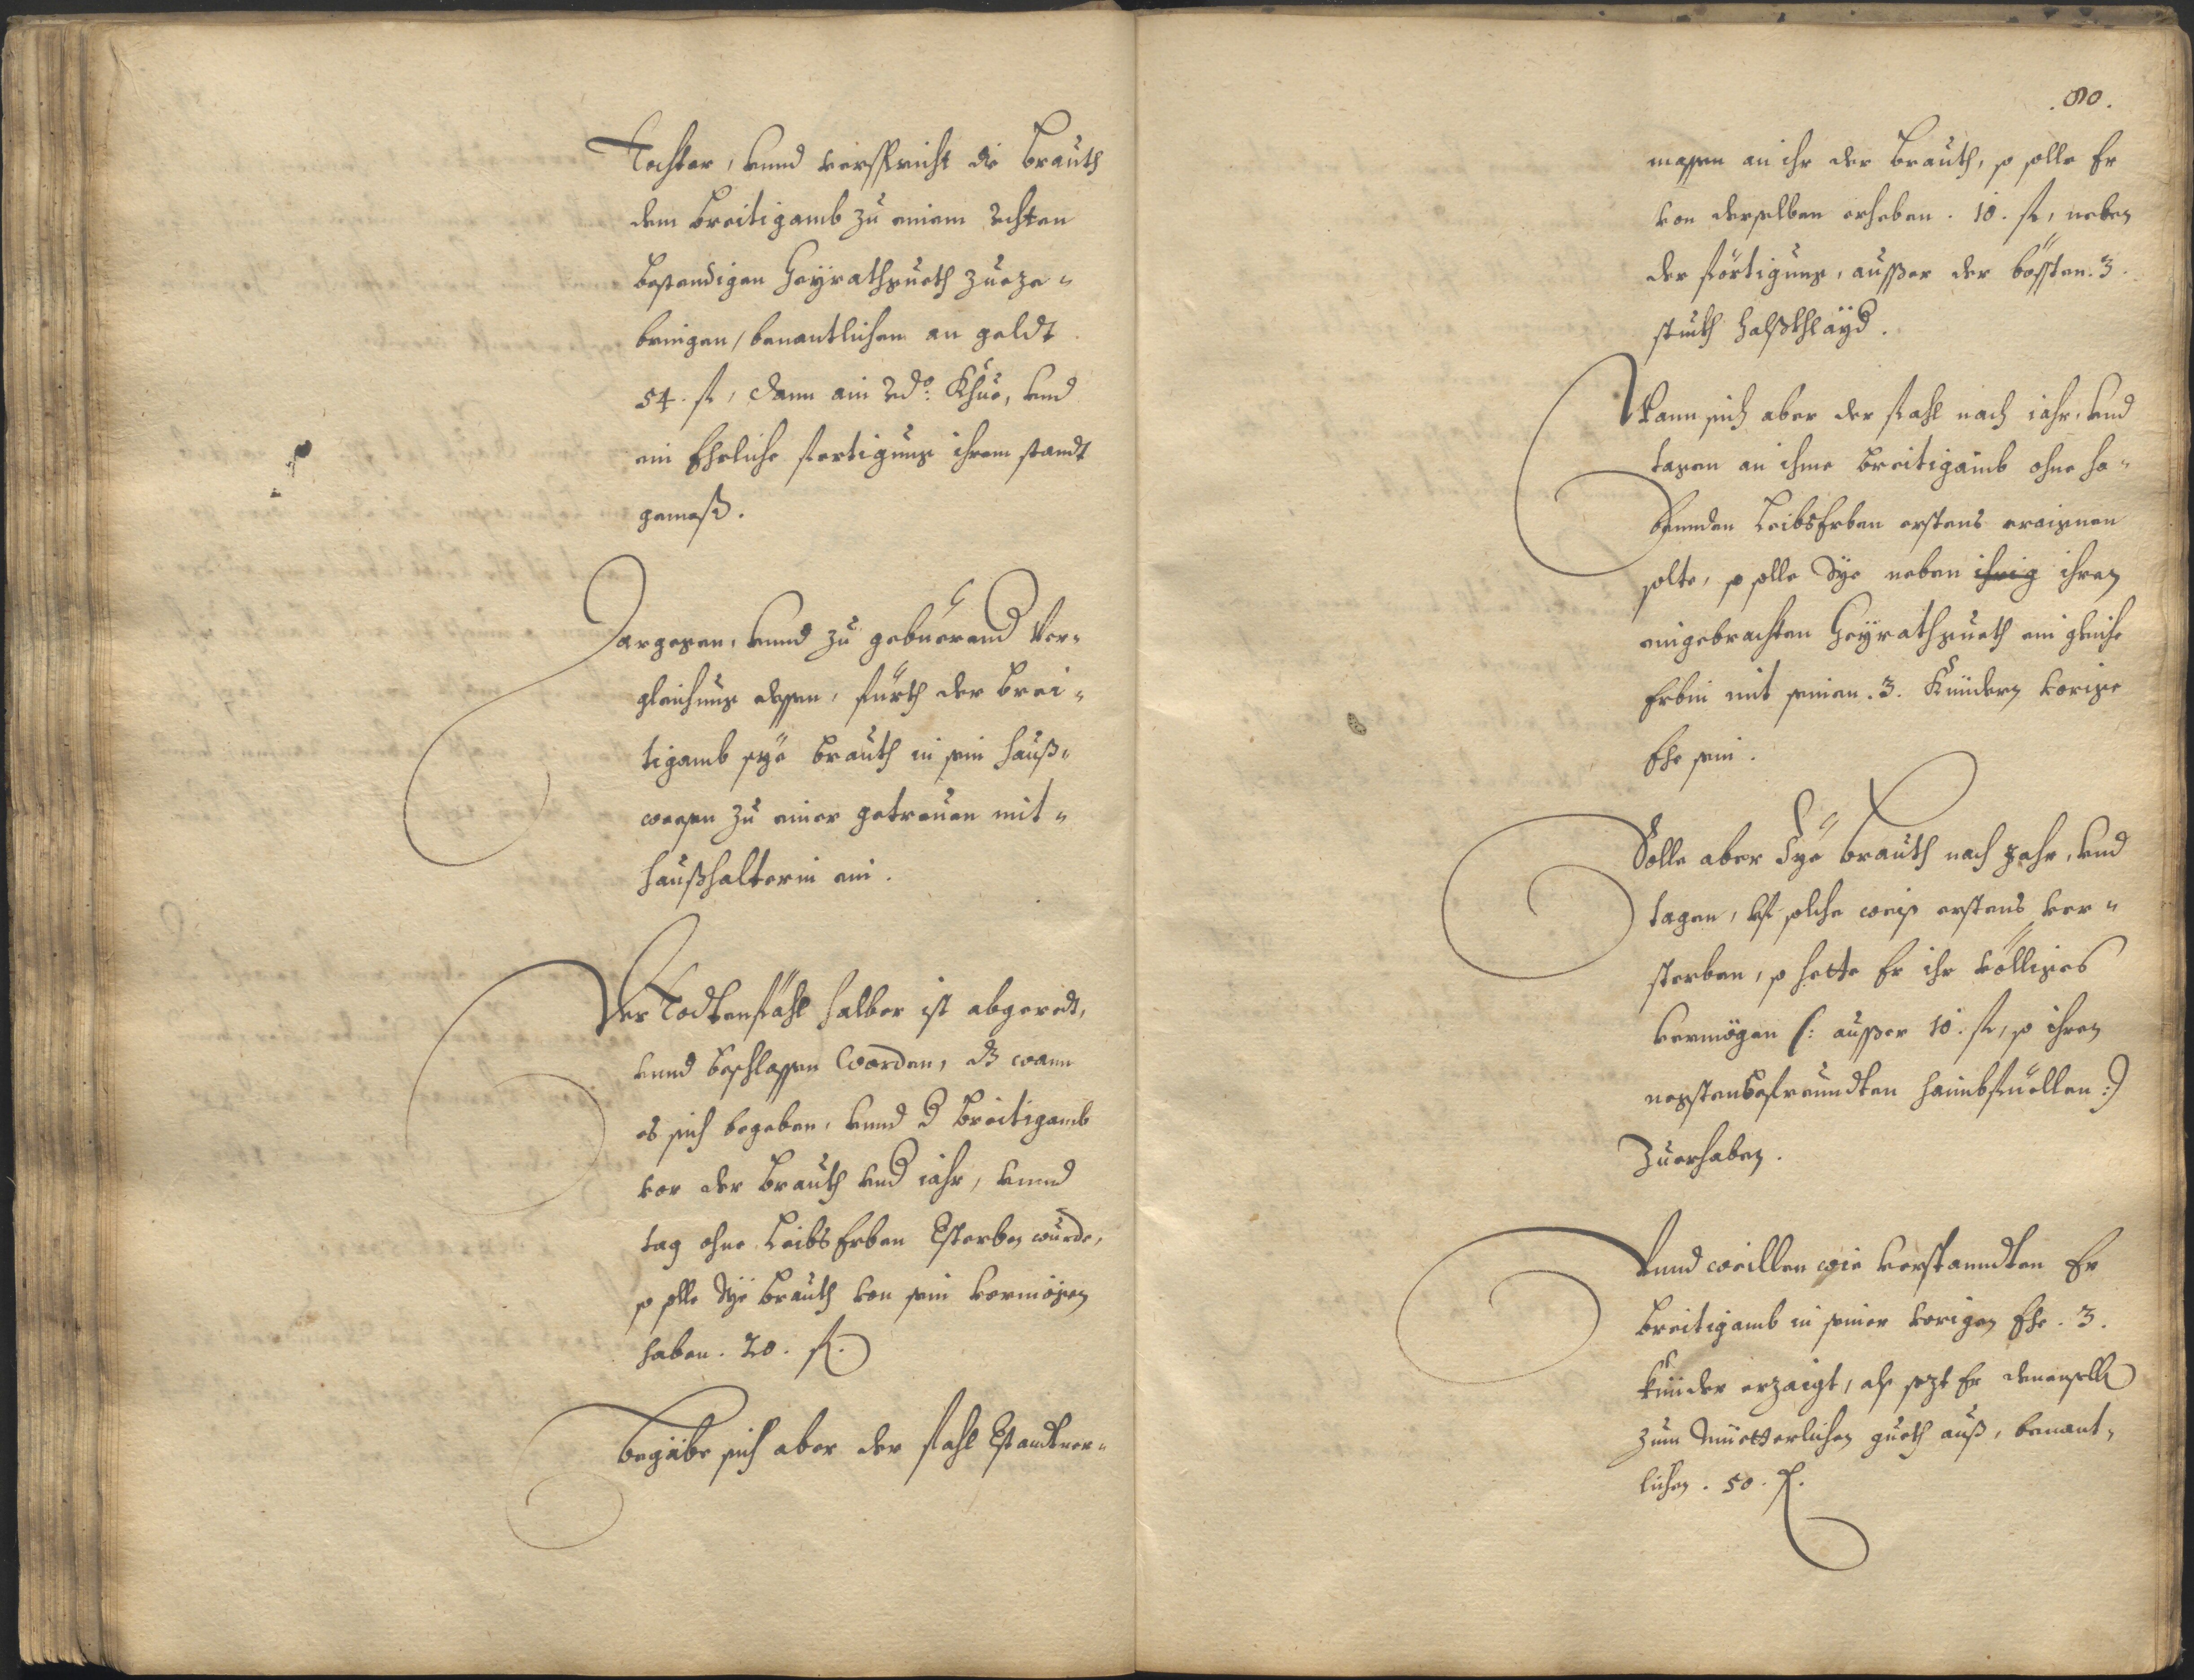 Tochter, vnnd verspricht die Brauth
dem Breitigamb zu einem rechten
bestendigen Heÿrathgueth zueze-
bringen, benantlichen an geldt
54. fl, dann ain rdo: Khue, vnd
ein Ehrliche fertigung ihrem standt
gemeß.
Dargegen, vnnd zu gebüerend ver-
gleichung dessen, fürth der Brei-
tigamb sÿe Brauth in sein hauß-
weesen zu einer getreuen mit-
haußhalterin ein.
Der Todtenfähl halber ist abgeredt,
vnnd beschlossen worden, dz wann
es sich begeben, vnnd d Breitigamb
vor der Brauth vnd iahr, vnnd
tag ohne Leibs Erben versterben wurde,
so solle dÿe Brauth von sein vermögen
haben. 20. fl.
Begäbe sich aber der fahl verstandtner-
.80.
massen an ihr der Brauth, so solle Er
von derselben erheben. 10. fl, neben
der förtigung, ausser der bössten. 3.
stuckh halßkhlaÿd.
Wann sich aber der fahl nach iahr, vnd
tagen an ihme Breitigamb ohne ha-
bennden LeibsErben erstens ereignen
solte, so solle dÿe neben ihrig ihren
eingebrachten Heÿrathgueth ein gleiche
Erbin mit seinen. 3. Kündern voriger
Ehe sein.
Solle aber dÿe Brauth nach jahr, vnd
tagen, vf solche weiß erstens ver-
sterben, so hette Er ihr völliges
vermögen (: ausser 10. fl, so ihren
negstenbefreundten haimbfüellen :)
zuerhaben.
Vnnd weillen wie verstanndten Er
Breitigamb in seiner vorigen Ehe. 3.
künder erzaigt, als sezt Er denenselben
zum Müetterlichen gueth auß, benant-
lichen. 50. fl.